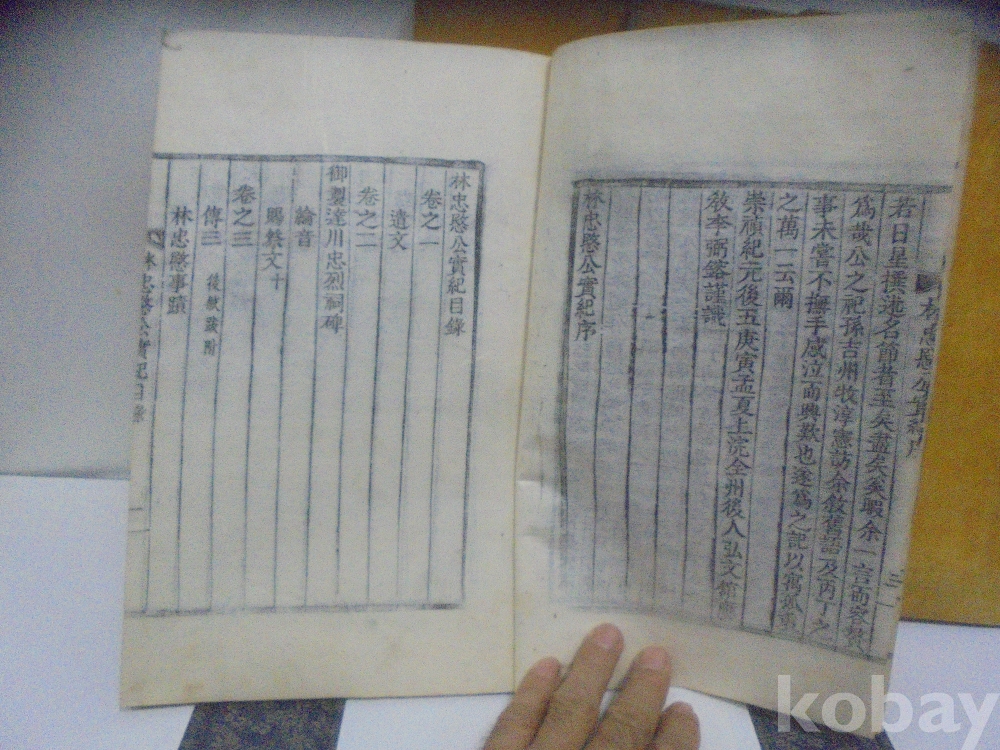 若日星撰述名節者至矣盡矣奚暇余一言而容贅
爲哉公之祀孫吉州牧淳憲訪余敘舊話及丙丁之
事未嘗不撫手感泣而興歎也遂爲之記以寓
之萬一云爾
崇禎紀元後五庚寅孟夏上浣全州後人弘文館
敘李弼鎔謹識
林忠愍公實紀序
林忠愍公實紀序
三
林忠愍公實紀目錄
卷之一
遺文
卷之二
御製達川忠烈祠碑
綸音
賜祭文十
卷之三
傳三 後敘
林忠愍事蹟
林忠愍公實紀目錄
一
kobay